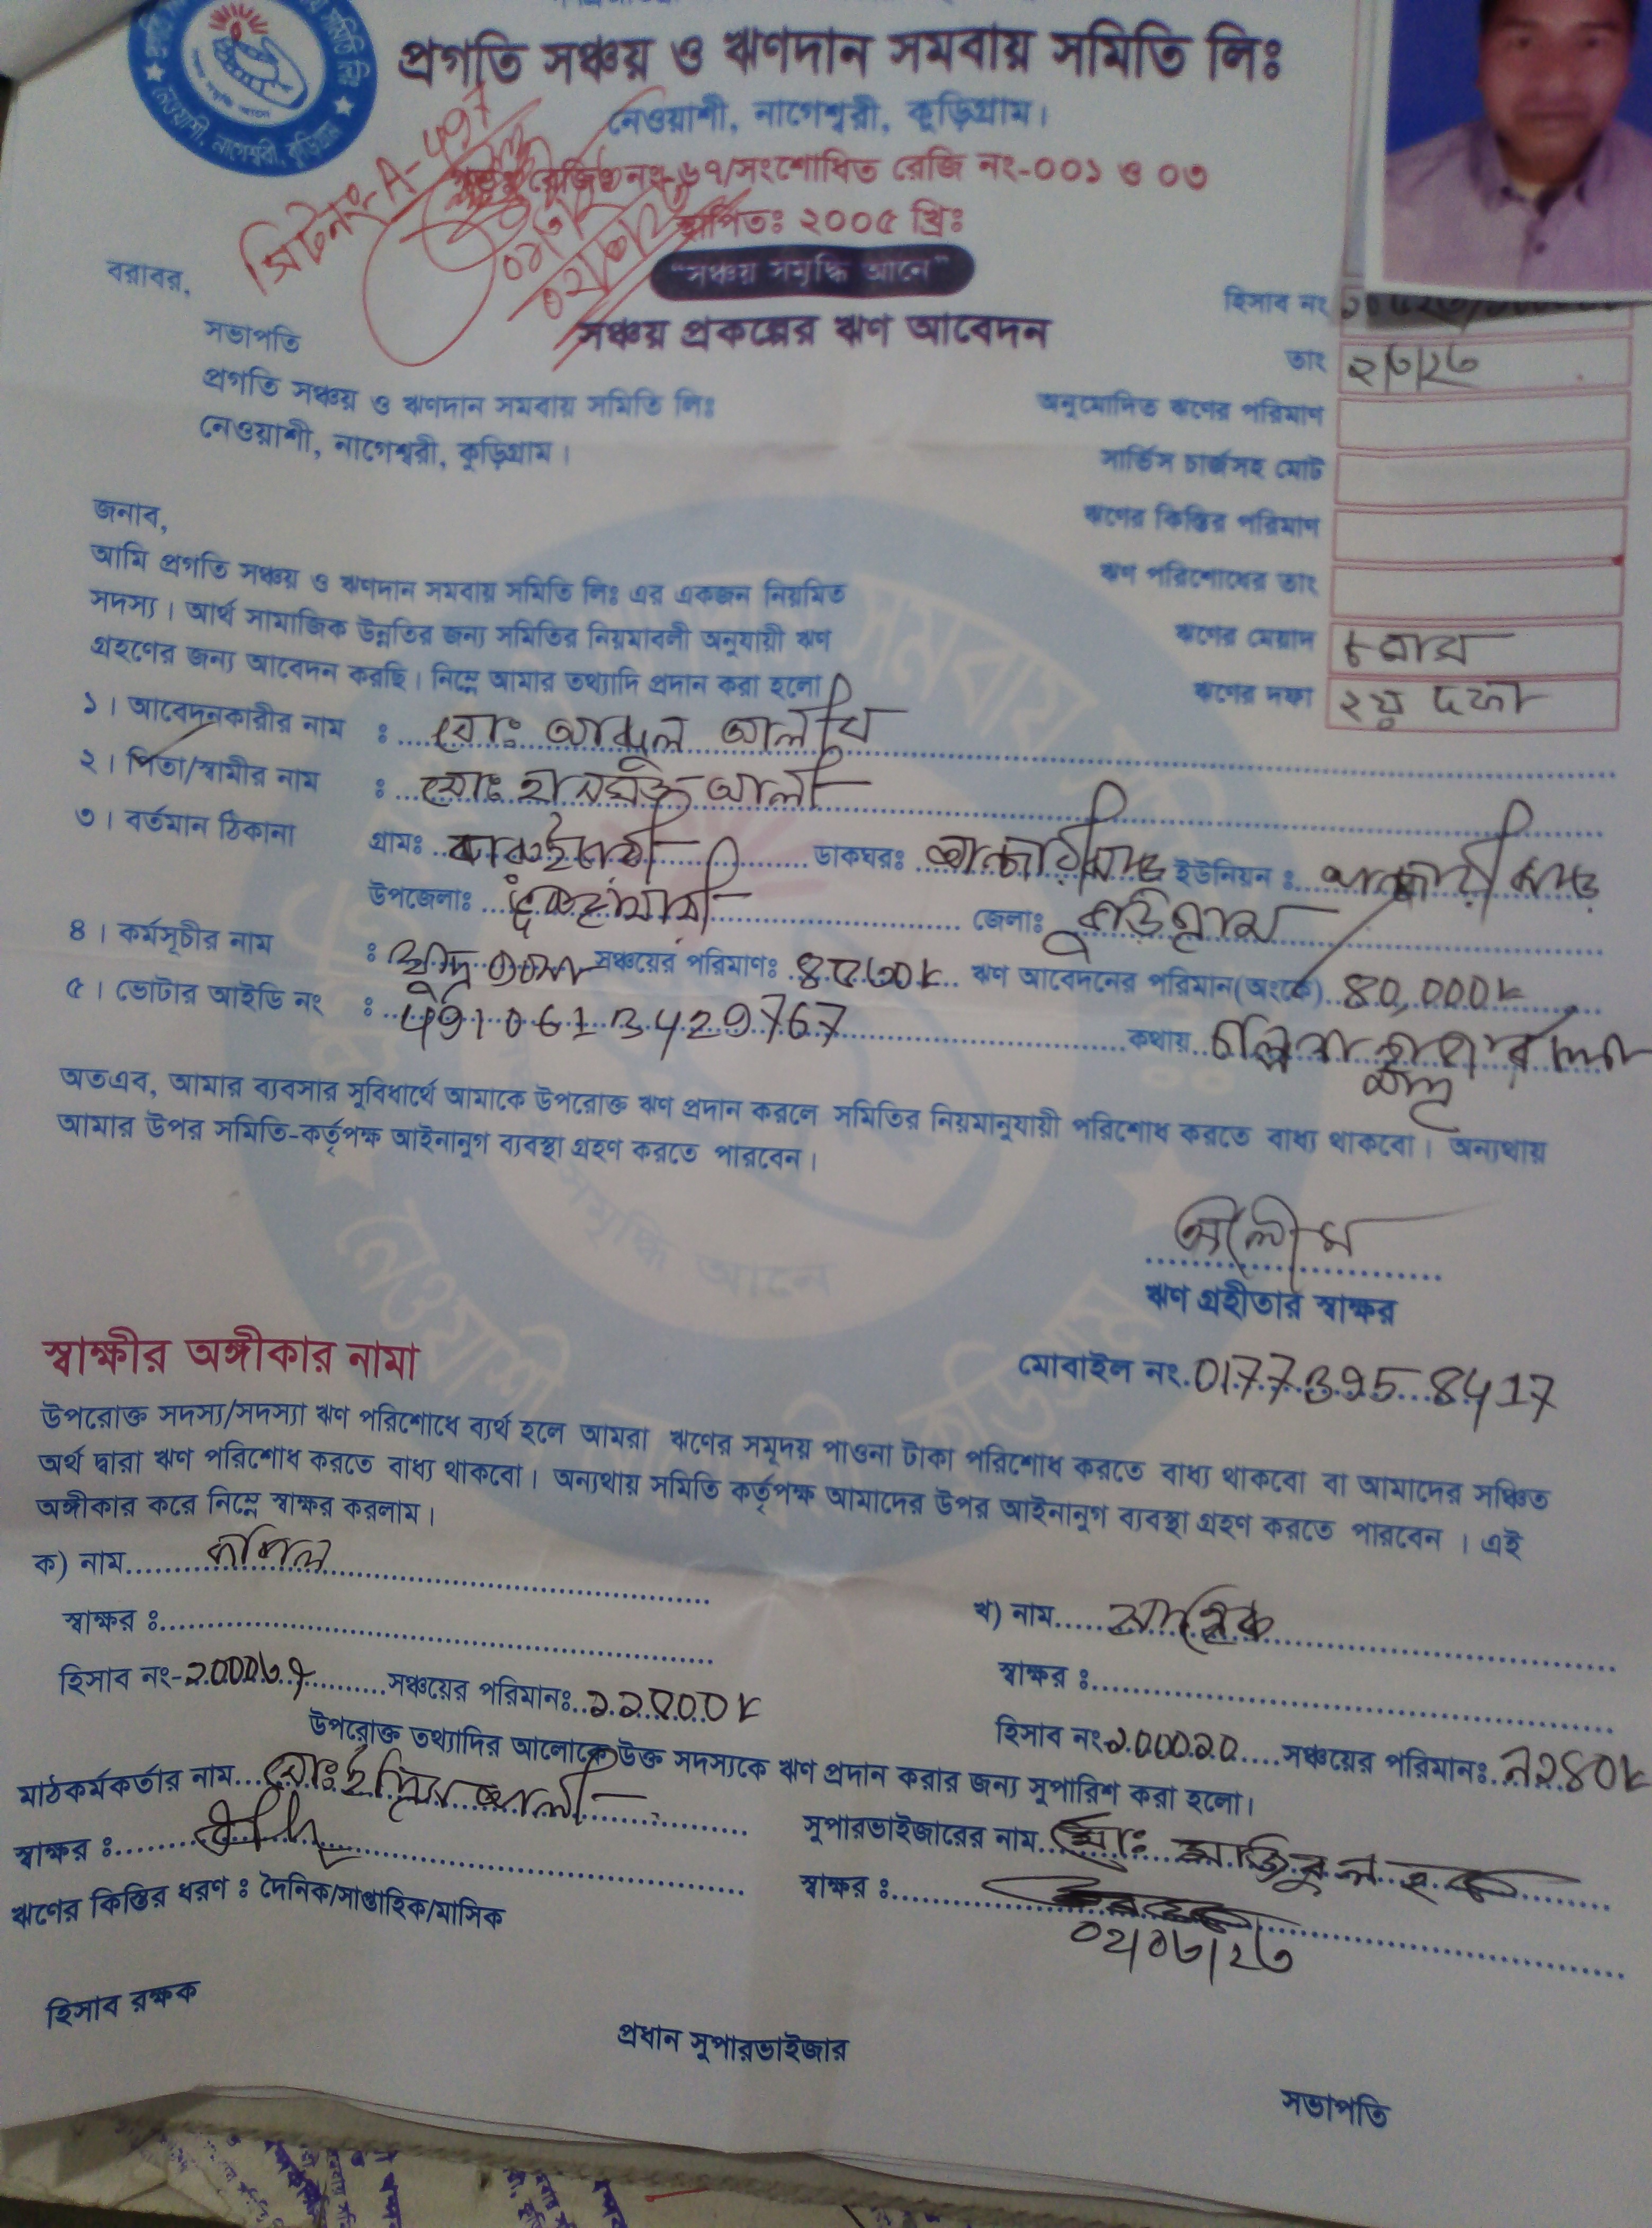 প্রগতি সঞ্চয় ও ঋণদান সমবায় সমিতি লিঃ
নেওয়াশী, নাগেশ্বরী, কুড়িগ্রাম।
রেজিঃ নং-৬৭/সংশোধিত রেজি নং-০০১ ও ০৩
স্থাপিতঃ ২০০৫ খ্রিঃ
"সঞ্চয় সমৃদ্ধি আনে"
সঞ্চয় প্রকল্পের ঋণ আবেদন
নেওয়াশী, নাগেশ্বরী, কুড়িগ্রাম
সিটনং-A-
বরাবর,
সভাপতি
প্রগতি সঞ্চয় ও ঋণদান সমবায় সমিতি লিঃ
নেওয়াশী, নাগেশ্বরী, কুড়িগ্রাম।
হিসাব নং
তাং ২/৩/২৩
অনুমোদিত ঋণের পরিমাণ
সার্ভিস চার্জসহ মোট
ঋণের কিস্তির পরিমাণ
ঋণ পরিশোধের তাং
ঋণের মেয়াদ ৮ মাস
ঋণের দফা ২য় দফা
জনাব,
আমি প্রগতি সঞ্চয় ও ঋণদান সমবায় সমিতি লিঃ এর একজন নিয়মিত
সদস্য। আর্থ সামাজিক উন্নতির জন্য সমিতির নিয়মাবলী অনুযায়ী ঋণ
গ্রহণের জন্য আবেদন করছি। নিম্নে আমার তথ্যাদি প্রদান করা হলো
১। আবেদনকারীর নাম : মোঃ আব্দুল আলীম
২। পিতা/স্বামীর নাম : মোঃ আলী
৩। বর্তমান ঠিকানা গ্রামঃ ডাকঘরঃ আন্ধারীঝাড় ইউনিয়ন : আন্ধারীঝাড়
উপজেলাঃ ভুরুঙ্গামারী জেলাঃ কুড়িগ্রাম
৪। কর্মসূচীর নাম : ক্ষুদ্র ব্যবসা সঞ্চয়ের পরিমাণঃ ঋণ আবেদনের পরিমান(অংকে) ৪০,০০০/=
৫। ভোটার আইডি নং : 4910613429767 কথায় চল্লিশ হাজার টাকা মাত্র
অতএব, আমার ব্যবসার সুবিধার্থে আমাকে উপরোক্ত ঋণ প্রদান করলে সমিতির নিয়মানুযায়ী পরিশোধ করতে বাধ্য থাকবো। অন্যথায়
আমার উপর সমিতি-কর্তৃপক্ষ আইনানুগ ব্যবস্থা গ্রহণ করতে পারবেন।
আলীম
ঋণ গ্রহীতার স্বাক্ষর
মোবাইল নং. 01773958417
স্বাক্ষীর অঙ্গীকার নামা
উপরোক্ত সদস্য/সদস্যা ঋণ পরিশোধে ব্যর্থ হলে আমরা ঋণের সমূদয় পাওনা টাকা পরিশোধ করতে বাধ্য থাকবো বা আমাদের সঞ্চিত
অর্থ দ্বারা ঋণ পরিশোধ করতে বাধ্য থাকবো। অন্যথায় সমিতি কর্তৃপক্ষ আমাদের উপর আইনানুগ ব্যবস্থা গ্রহণ করতে পারবেন। এই
অঙ্গীকার করে নিম্নে স্বাক্ষর করলাম।
ক) নাম
খ) নাম
স্বাক্ষর :
স্বাক্ষর :
হিসাব নং- সঞ্চয়ের পরিমানঃ
হিসাব নং সঞ্চয়ের পরিমানঃ
উপরোক্ত তথ্যাদির আলোকে উক্ত সদস্যকে ঋণ প্রদান করার জন্য সুপারিশ করা হলো।
মাঠকর্মকর্তার নাম মোঃ ইদ্রিস আলী
সুপারভাইজারের নাম মোঃ হক
স্বাক্ষর :
স্বাক্ষর :
০২/০৩/২৩
ঋণের কিস্তির ধরণ : দৈনিক/সাপ্তাহিক/মাসিক
হিসাব রক্ষক
প্রধান সুপারভাইজার
সভাপতি